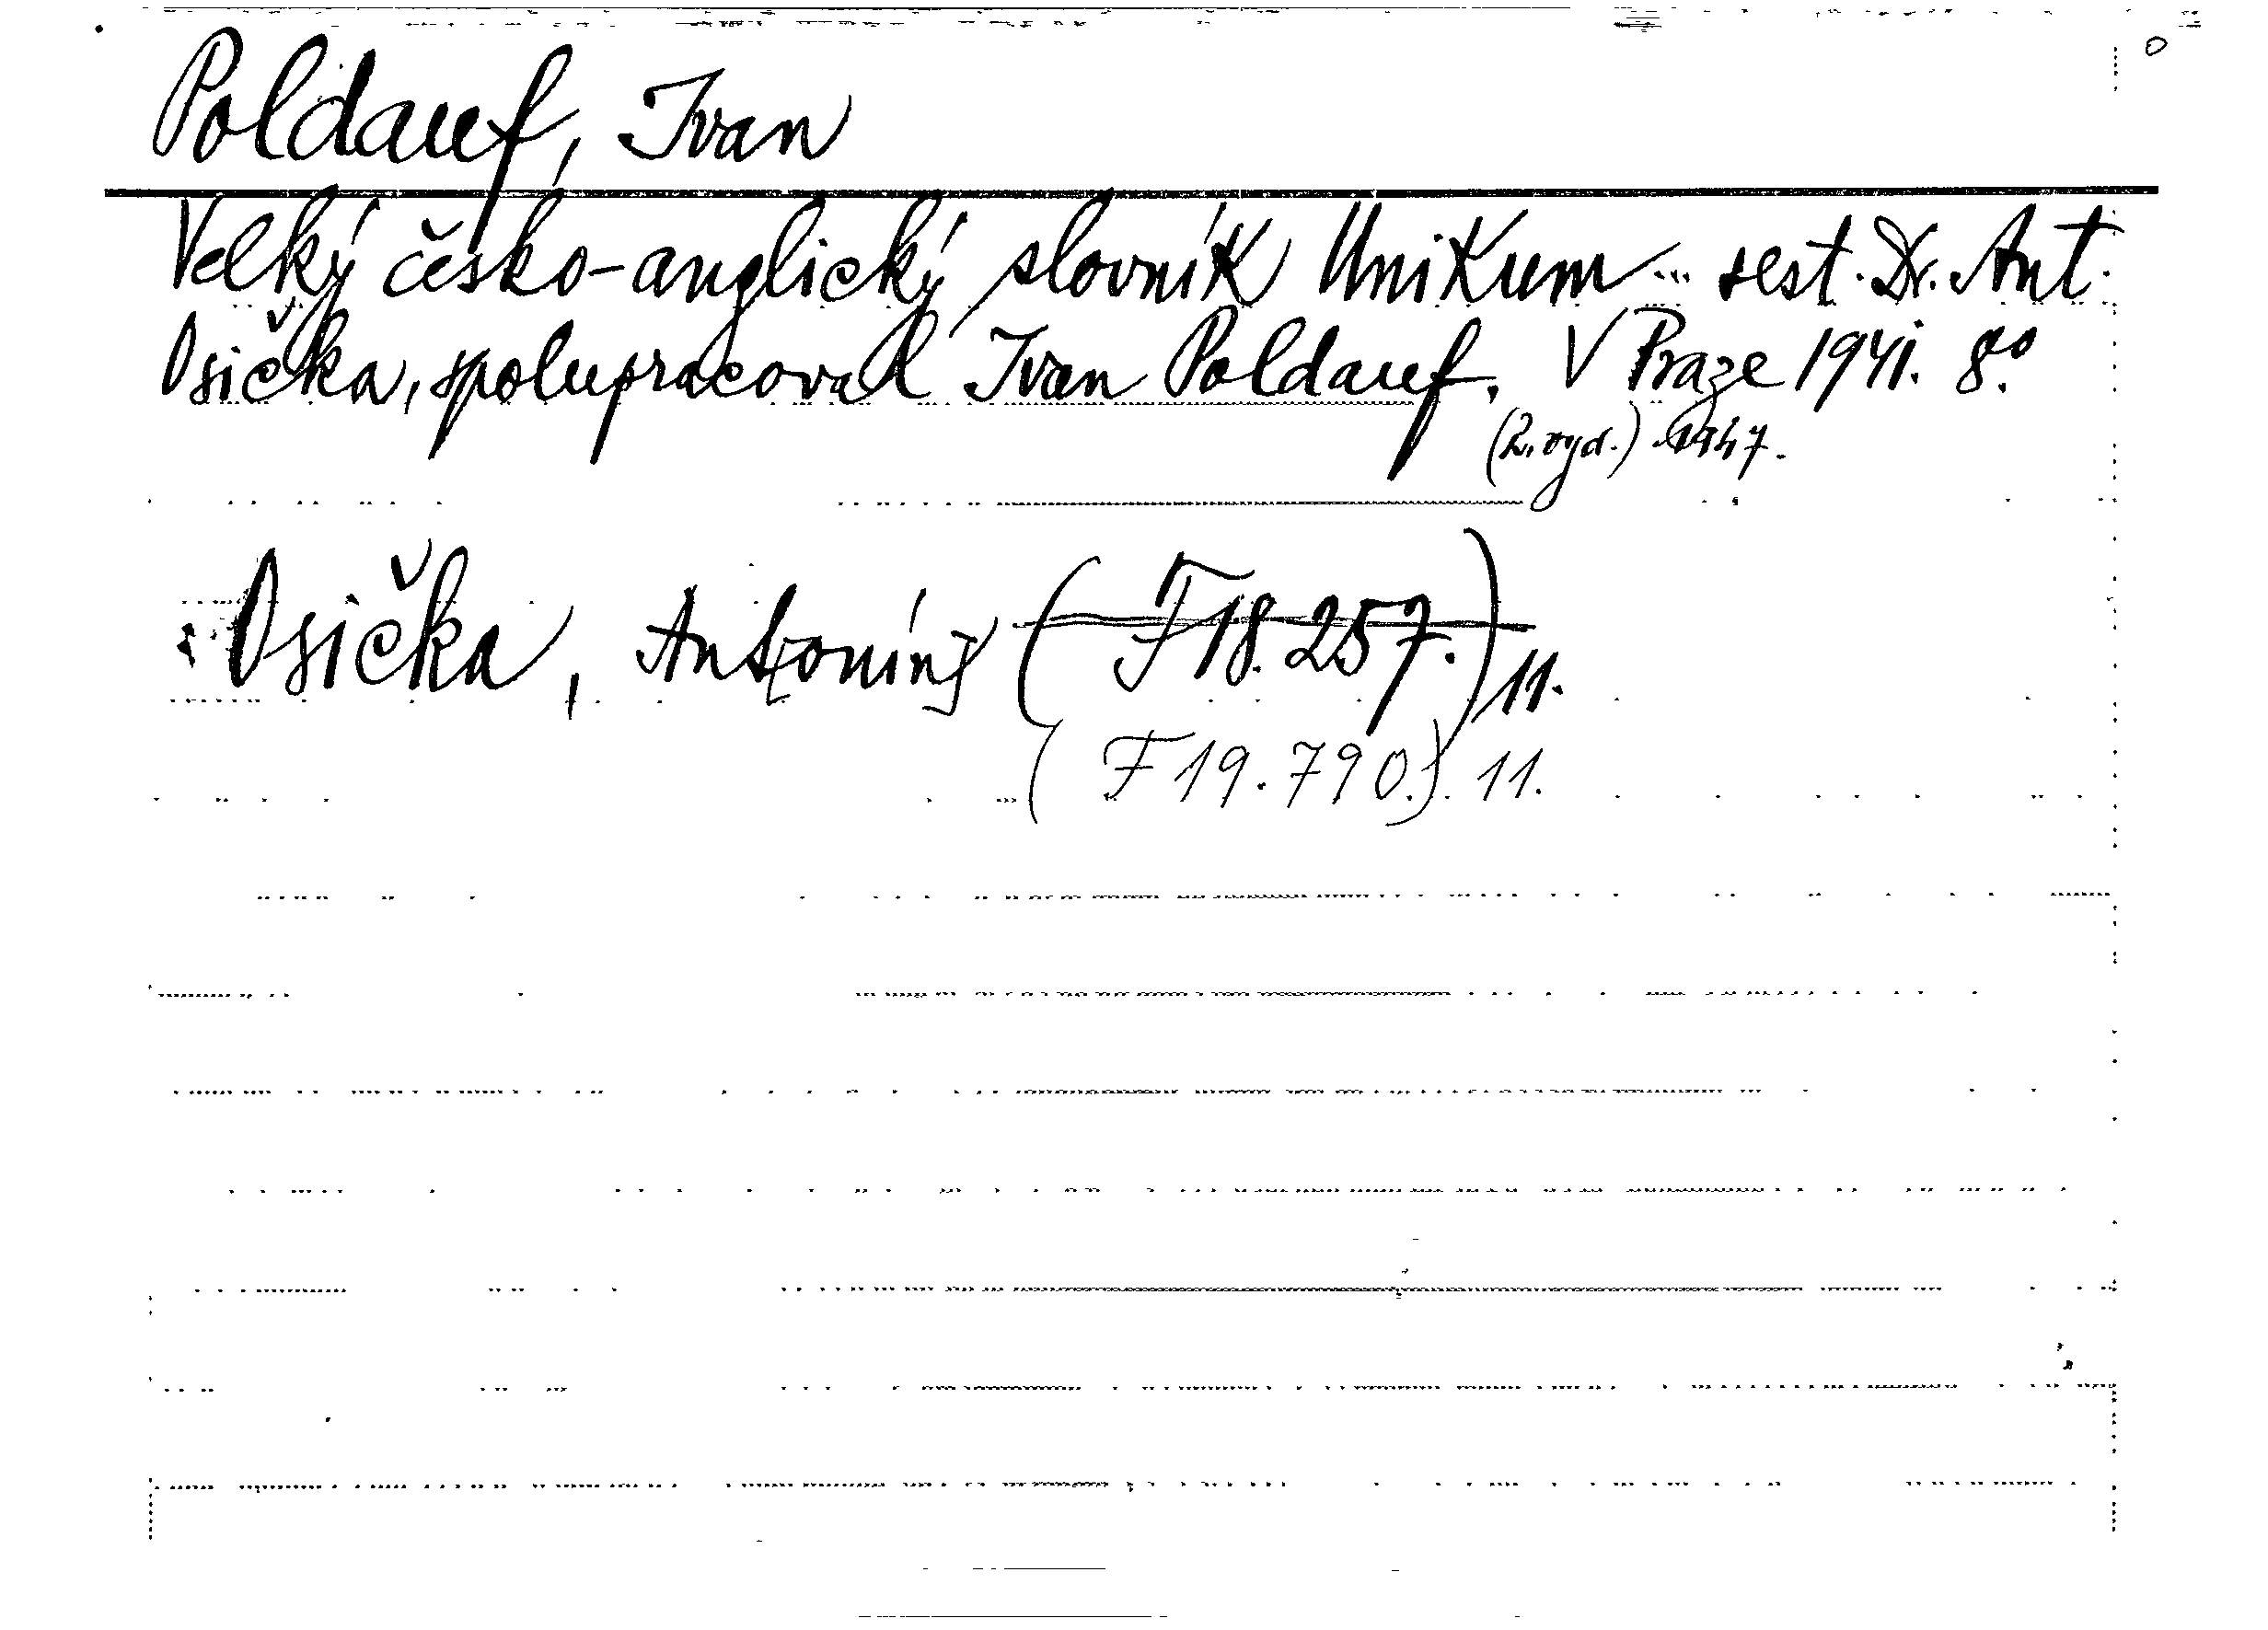 Poldauf, Ivan
Velký česko-anglický slovník Unikum ... sest. Dr. Ant.
Osička, spolupracoval Ivan Poldauf. V Praze 1941. 8.º
(2. vyd.) 1947.
: Osička, Antonín; (F 18.257.) 11.
(F 19.790.) 11.